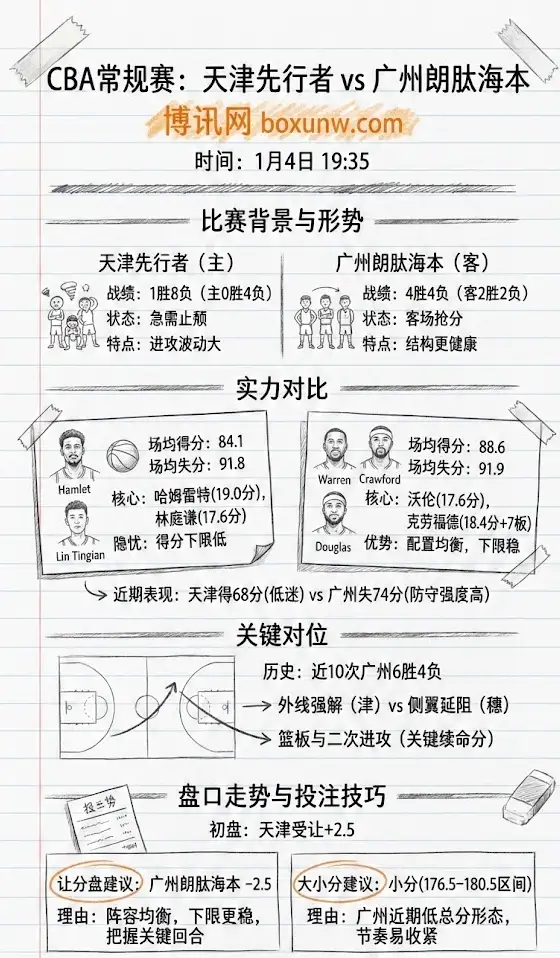 CBA常规赛：天津先行者 vs 广州朗肽海本
博讯网 boxunw.com
时间：1月4日 19:35
比赛背景与形势
天津先行者（主）
战绩：1胜8负（主0胜4负）
状态：急需止颓
特点：进攻波动大
广州朗肽海本（客）
战绩：4胜4负（客2胜2负）
状态：客场抢分
特点：结构更健康
实力对比
Hamlet
Lin Tingian
场均得分：84.1
场均失分：91.8
核心：哈姆雷特(19.0分)，
林庭谦(17.6分)
隐忧：得分下限低
Warren
Crawford
Douglas
场均得分：88.6
场均失分：91.9
核心：沃伦(17.6分)，
克劳福德(18.4分+7板)
优势：配置均衡，下限稳
近期表现：天津得68分(低迷) vs 广州失74分(防守强度高)
关键对位
历史：近10次广州6胜4负
外线强解（津）vs 侧翼延阻（穗）
篮板与二次进攻（关键续命分）
盘口走势与投注技巧
初盘：天津受让+2.5
让分盘建议：广州朗肽海本 −2.5
理由：阵容均衡，下限更稳，
把握关键回合
大小分建议：小分(176.5−180.5区间)
理由：广州近期低总分形态，
节奏易收紧